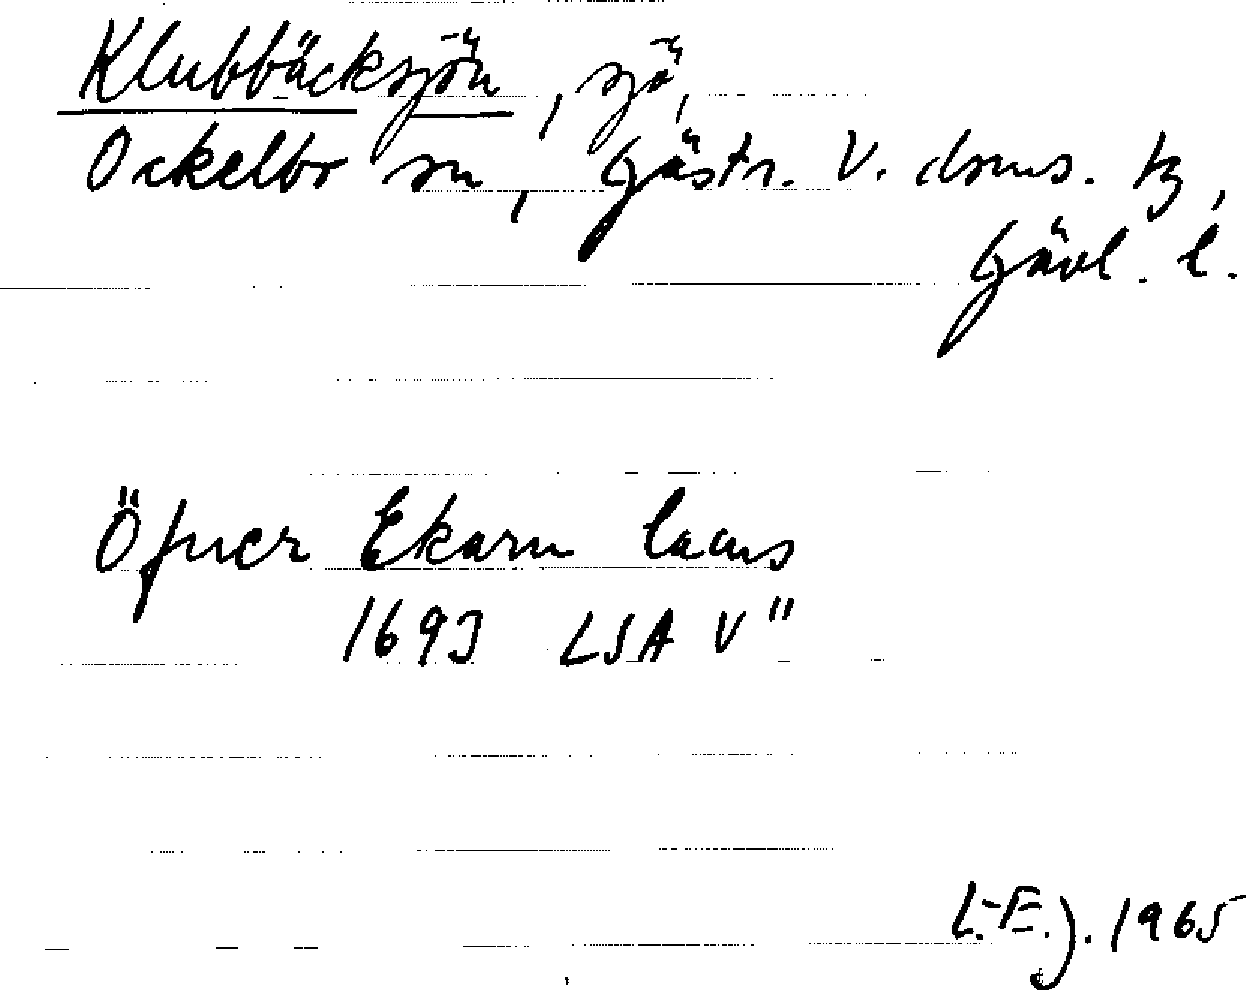 Klubbäcksjön, sjö,
Ockelbo sn, Gästr. V. doms. tg,
Gävl. l.
Öfver Ekarn laeus
1693 LSA V"
L.-E. J. 1965